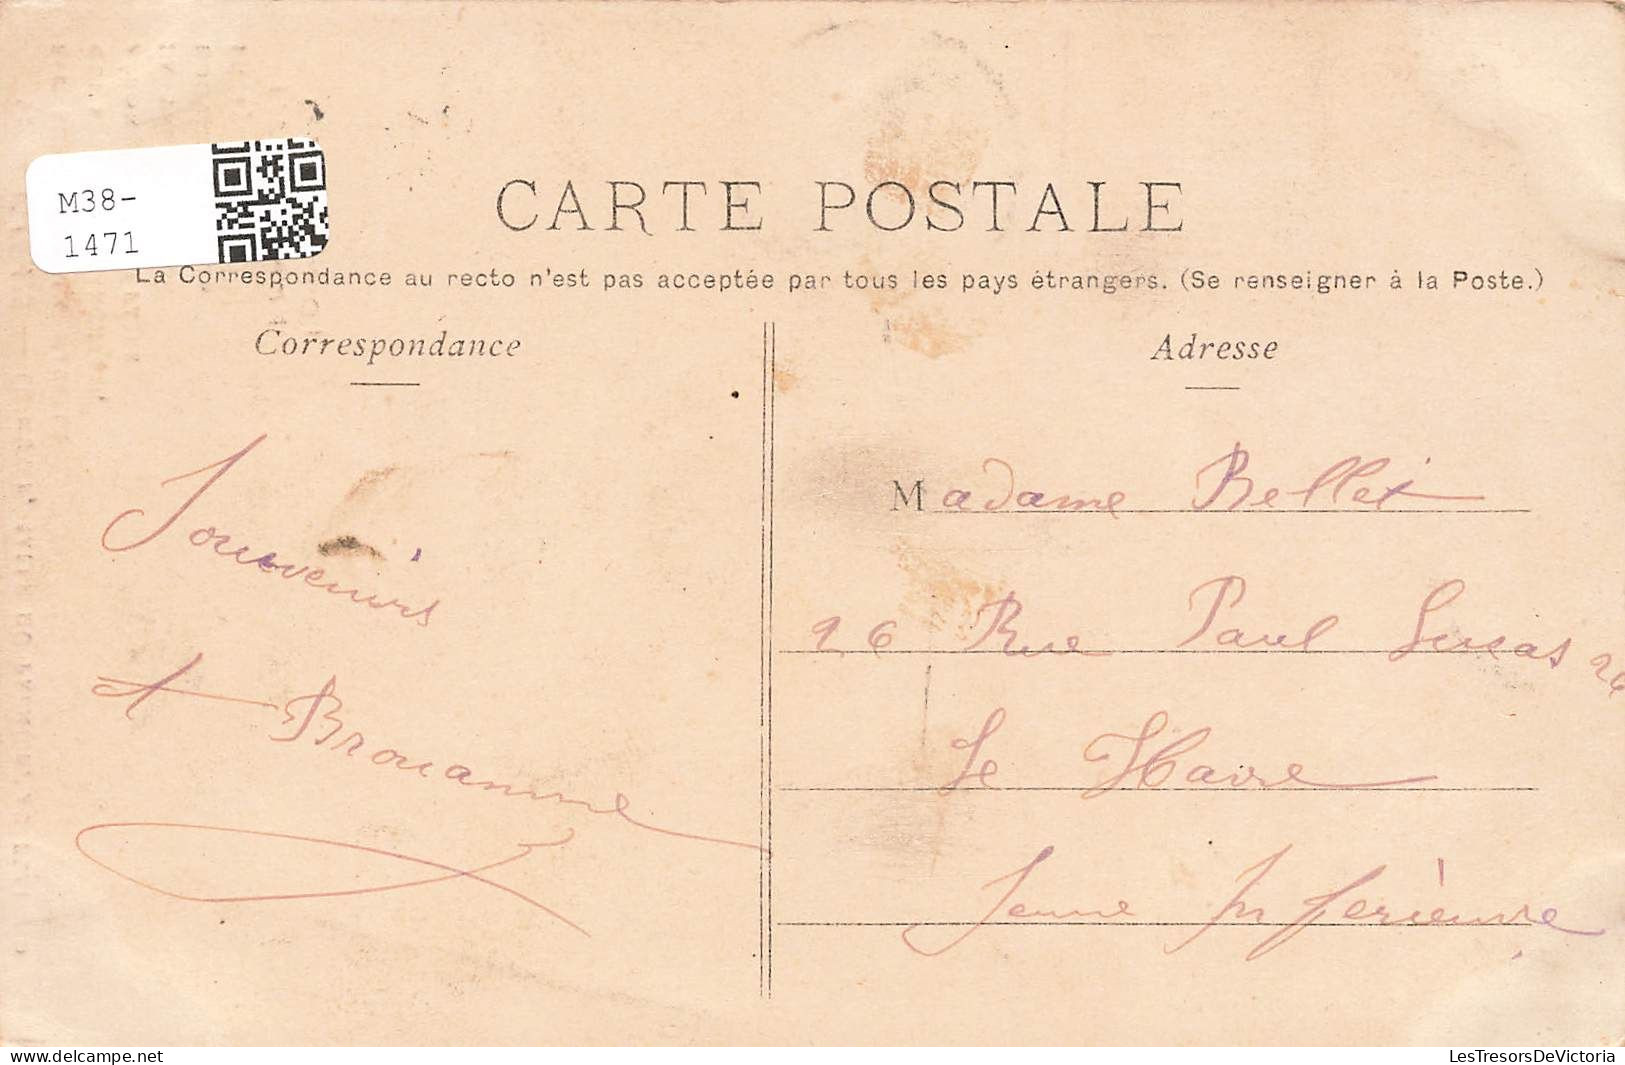 M38-
1471
CARTE POSTALE
La Correspondance au recto n'est pas acceptée par tous les pays étrangers. (Se renseigner à la Poste.)
Correspondance
Souvenirs
Brouamme
Adresse
Madame Bellet
26 Rue Paul Lucas 26
Le Havre
Seine Inférieure
delcampe.net
LesTresorsDeVictoria